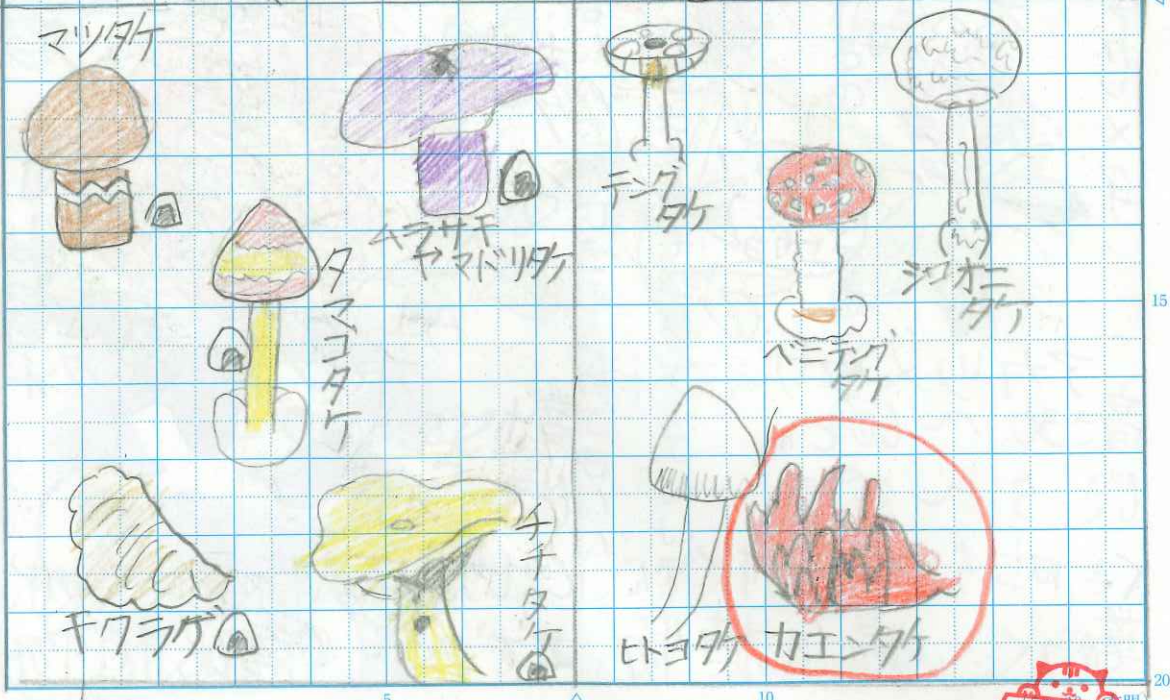 マツタケ
ムラサキ
ヤマドリタケ
タマゴタケ
キクラゲ
チチタケ
テング
タケ
ベニテング
タケ
シロオニ
タケ
ヒトヨタケ
カエンタケ
5
10
15
20